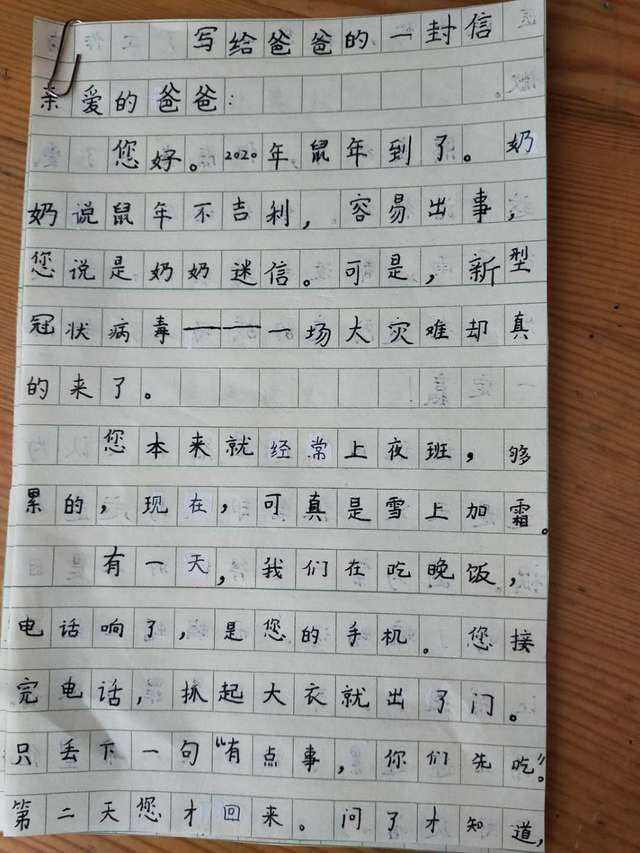 写给爸爸的一封信
亲爱的爸爸：
您好。2020年鼠年到了。奶
奶说鼠年不吉利，容易出事，
您说是奶奶迷信。可是，新型
冠状病毒———一场大灾难却真
的来了。
您本来就经常上夜班，够
累的，现在，可真是雪上加霜。
有一天，我们在吃晚饭，
电话响了，是您的手机。您接
完电话，抓起大衣就出了门。
只丢下一句“有点事，你们先吃”。
第二天您才回来。问了才知道，